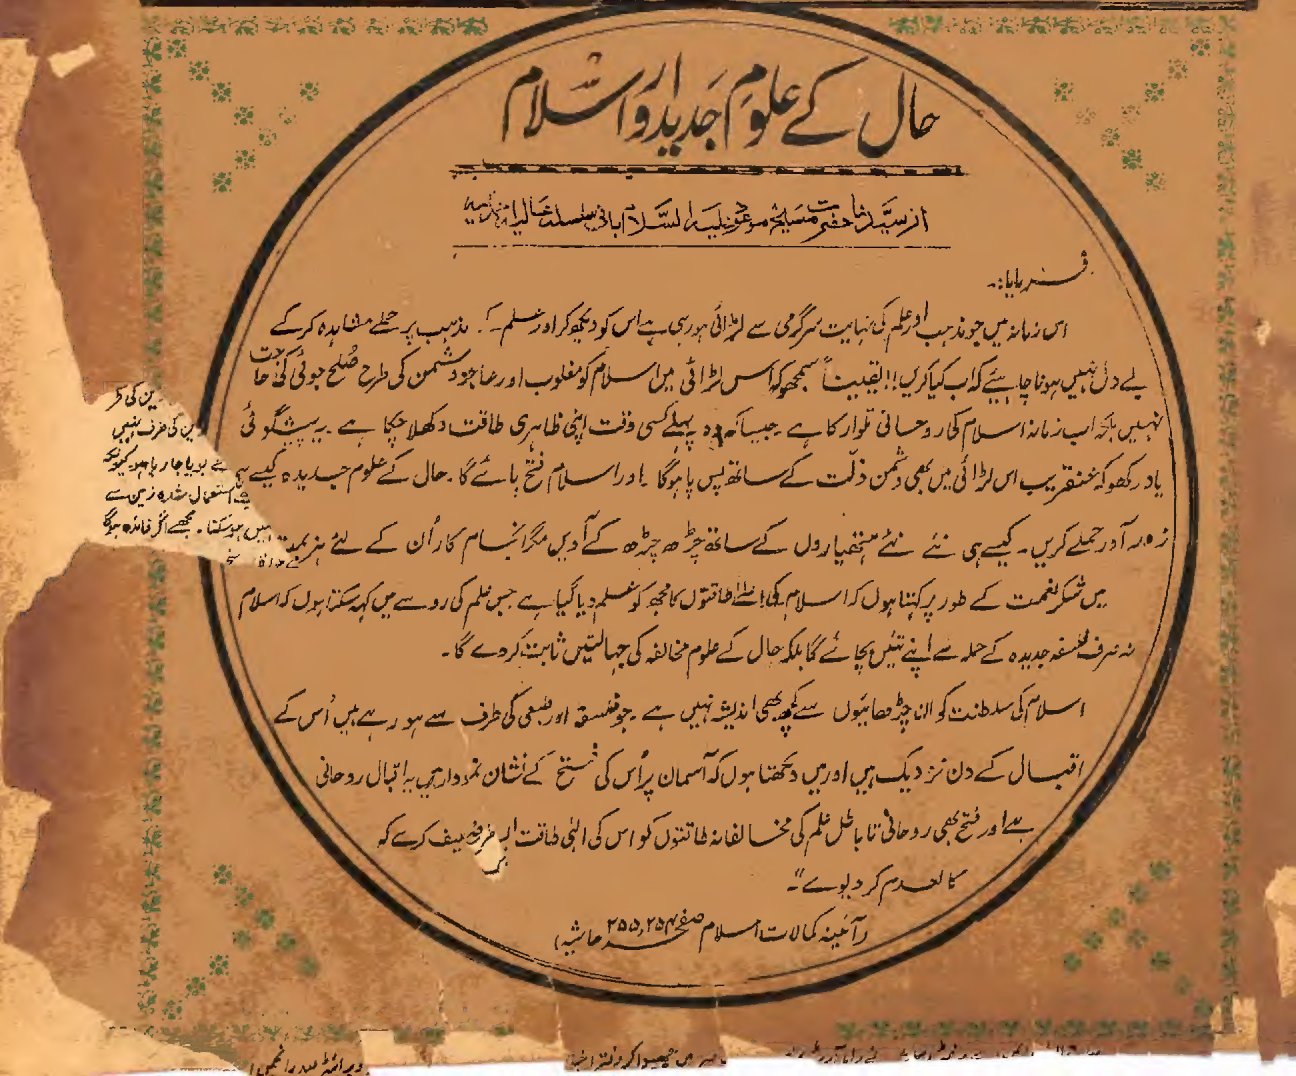 حال کے علوم جدیدہ اور اسلام
از سیدنا حضرت مسیح موعود علیہ السلام بانی سلسلہ عالیہ احمدیہ
فرمایا:۔
اس زمانہ میں جو مذہب اور علم کی نہایت سرگرمی سے لڑائی ہو رہی ہے اس کو دیکھ کر اور علم کے مذہب پر حملے مشاہدہ کر کے
بے دل نہیں ہونا چاہیئے کہ اب کیا کریں!! یقیناً سمجھو کہ اس لڑائی میں اسلام کو مغلوب اور عاجز دشمن کی طرح صلح جوئی کی حاجت
نہیں بلکہ اب زمانہ اسلام کی روحانی تلوار کا ہے۔ جیسا کہ وہ پہلے کسی وقت اپنی ظاہری طاقت دکھلا چکا ہے۔ یہ پیشگوئی
یاد رکھو کہ عنقریب اس لڑائی میں بھی دشمن ذلت کے ساتھ پس پا ہوگا۔ اور اسلام فتح پائے گا۔ حال کے علوم جدیدہ کیسے ہی
زور آور حملے کریں۔ کیسے ہی نئے نئے ہتھیاروں کے ساتھ چڑھ چڑھ کے آویں مگر انجام کار اُن کے لئے ہزیمت
میں شکر نعمت کے طور پر کہتا ہوں کہ اسلام کی اعلیٰ طاقتوں کا مجھ کو علم دیا گیا ہے جس علم کی رو سے میں کہہ سکتا ہوں کہ اسلام
نہ صرف فلسفہ جدیدہ کے حملہ سے اپنے تئیں بچائے گا بلکہ حال کے علوم مخالفہ کی جہالتیں ثابت کر دے گا۔
اسلام کی سلطنت کو ان چڑھائیوں سے کچھ بھی اندیشہ نہیں ہے۔ جو فلسفہ اور طبعی کی طرف سے ہو رہے ہیں اُس کے
اقبال کے دن نزدیک ہیں اور میں دیکھتا ہوں کہ آسمان پر اُس کی فتح کے نشان نمودار ہیں یہ اقبال روحانی
ہے اور فتح بھی روحانی تا باطل علم کی مخالفانہ طاقتوں کو اس کی الٰہی طاقت ضعیف کرے کہ
کالعدم کر دیوے"۔
(آئینہ کمالات اسلام صفحہ ۲۵۴، ۲۵۵ حاشیہ)
دین کی طرف نہیں
بویا جا رہا ہو کیونکہ
استعمال شدہ زمین سے
نہیں ہو سکتا۔ مجھے اگر فائدہ ہوگا